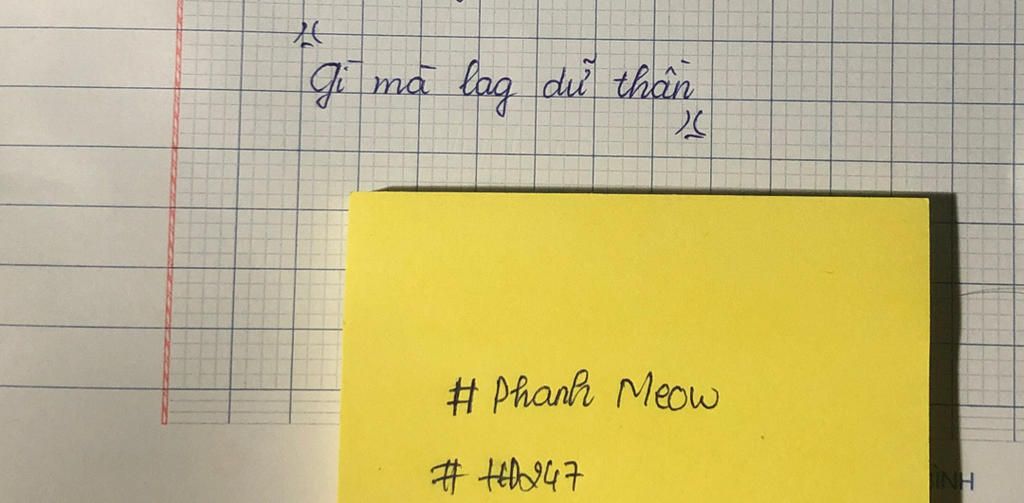 "Gì mà lag dữ thần"
# Phanh Meow
# HD247
ÌNH